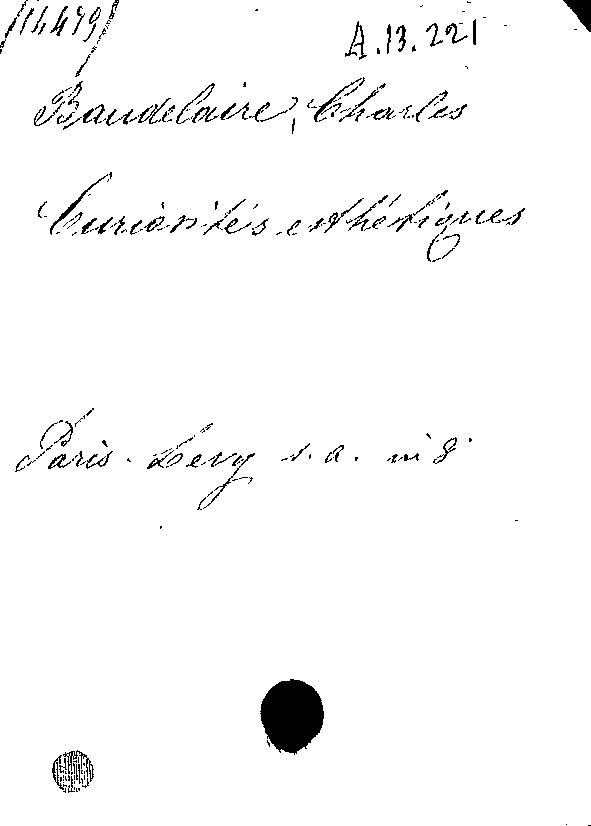 (14479) A.13.221
Baudelaire, Charles
Curiosités esthétiques
Paris. Levy s.a. in 8.